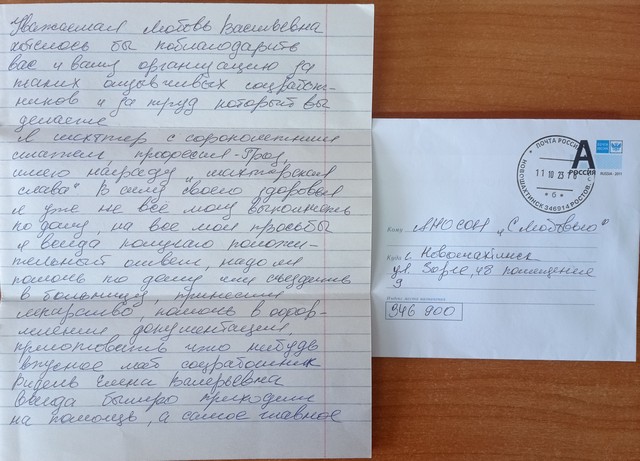 Уважаемая Любовь Васильевна
хотелось бы поблагодарить
вас и вашу организацию за
таких отзывчивых соцработ-
ников и за труд который вы
делаете.
Я шахтер с сорокалетним
стажем, профессия - Гроз,
имею награду „шахтерская
слава" В силу своего здоровья
я уже не всё могу выполнять
по дому, на все мои просьбы
я всегда получаю положи-
тельный ответ, надо ли
помочь по дому или съездить
в больницу, принести
лекарство, помочь в офор-
млении документации,
приготовить что нибудь
вкусное мой соцработник
Елена Валерьевна
Всегда быстро приходит
на помощь, а самое главное
ПОЧТА РОССИИ
11 10 23
НОВОШАХТИНСК 346914 РОСТОВ.
б
А
РОССИЯ
Кому АНОСОН „С Любовью"
Куда г. Новошахтинск
ул Зорге, 48 помещение
9
346 900